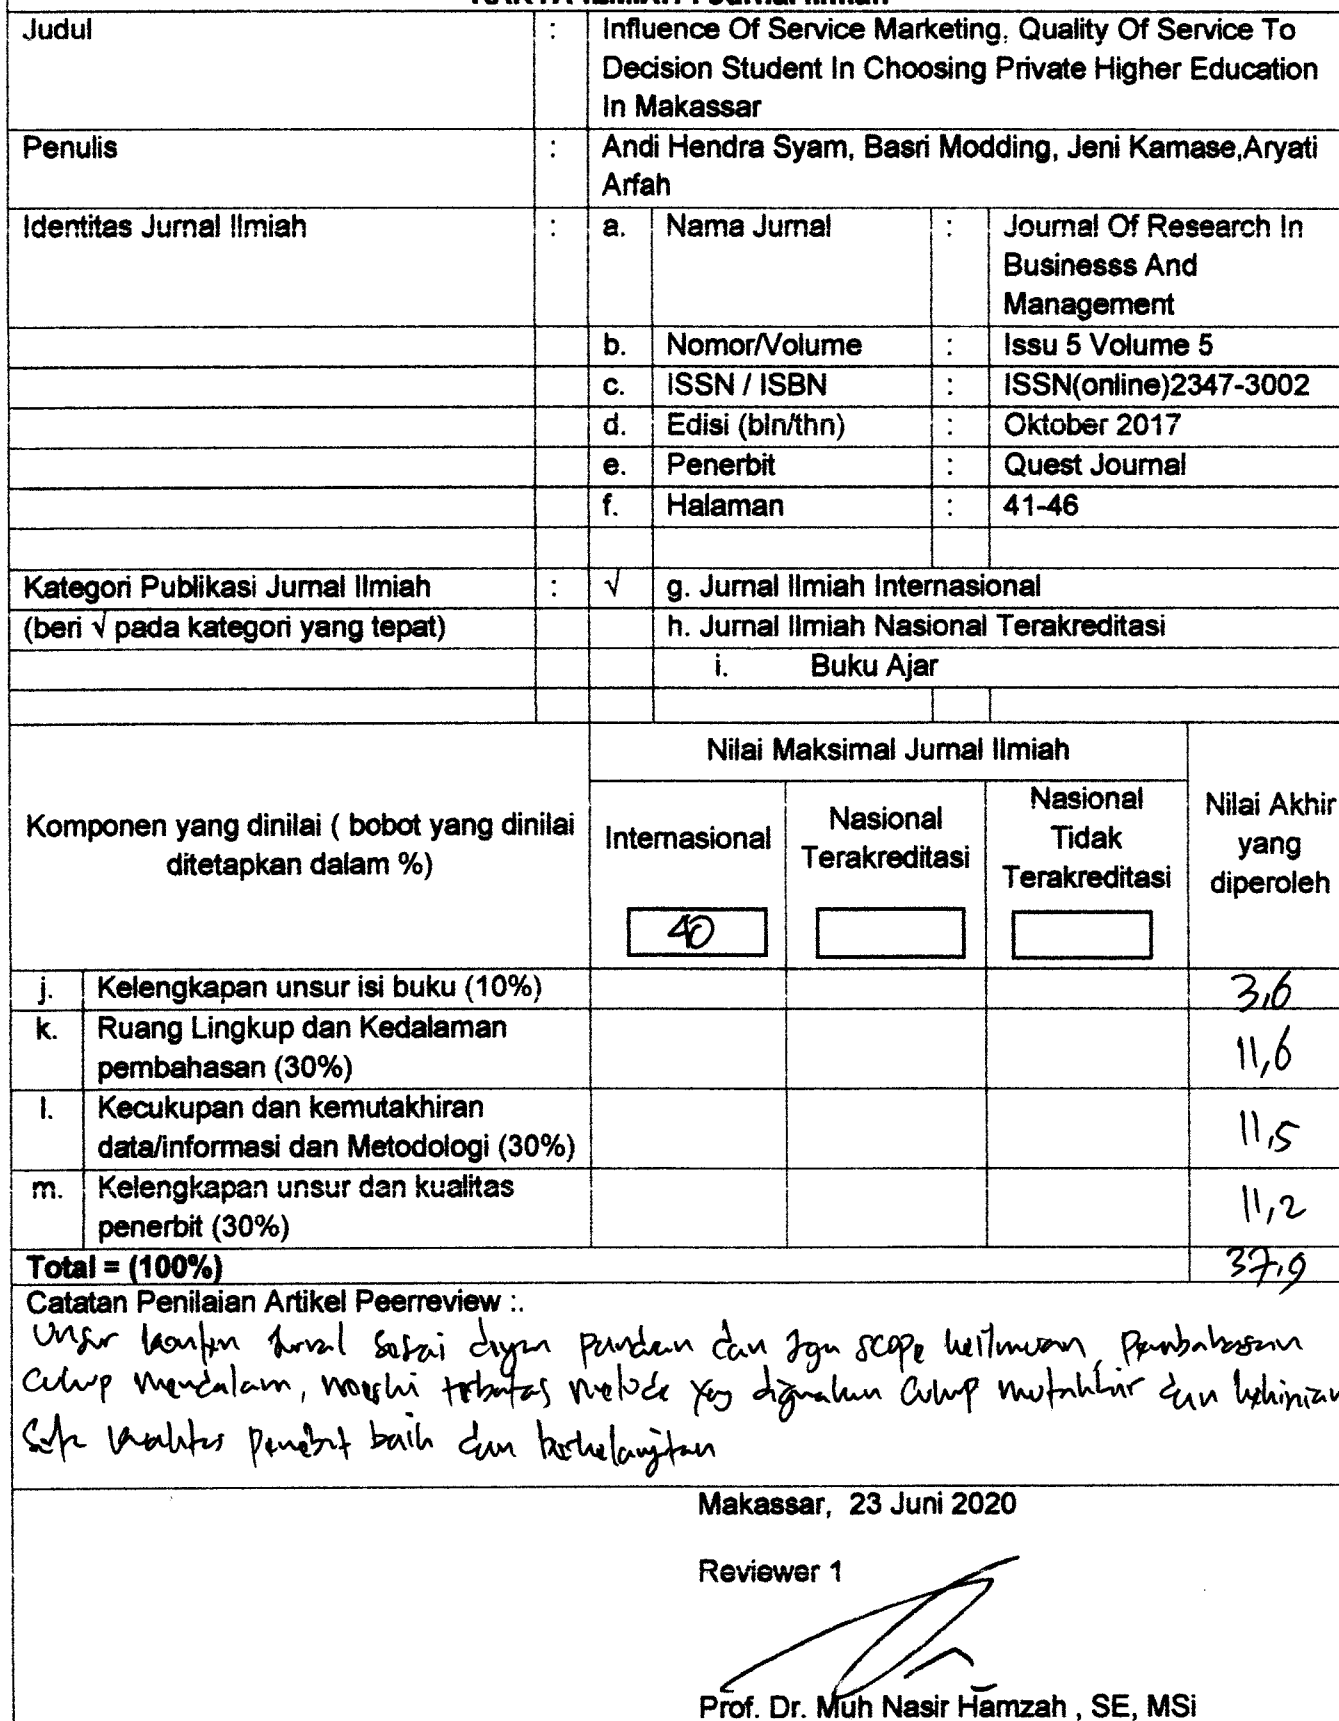 KARYA ILMIAH : Jurnal Ilmiah
Judul : Influence Of Service Marketing, Quality Of Service To
Decision Student In Choosing Private Higher Education
In Makassar
Penulis : Andi Hendra Syam, Basri Modding, Jeni Kamase,Aryati
Arfah
Identitas Jurnal Ilmiah : a. Nama Jurnal : Journal Of Research In
Businesss And
Management
b. Nomor/Volume : Issu 5 Volume 5
c. ISSN / ISBN : ISSN(online)2347-3002
d. Edisi (bln/thn) : Oktober 2017
e. Penerbit : Quest Journal
f. Halaman : 41-46
Kategori Publikasi Jurnal Ilmiah : √ g. Jurnal Ilmiah Internasional
(beri √ pada kategori yang tepat) h. Jurnal Ilmiah Nasional Terakreditasi
i. Buku Ajar
Komponen yang dinilai ( bobot yang dinilai
ditetapkan dalam %)
Nilai Maksimal Jurnal Ilmiah
Internasional
Nasional
Terakreditasi
Nasional
Tidak
Terakreditasi
Nilai Akhir
yang
diperoleh
40
j. Kelengkapan unsur isi buku (10%) 3,6
k. Ruang Lingkup dan Kedalaman
pembahasan (30%) 11,6
l. Kecukupan dan kemutakhiran
data/informasi dan Metodologi (30%) 11,5
m. Kelengkapan unsur dan kualitas
penerbit (30%) 11,2
Total = (100%) 37,9
Catatan Penilaian Artikel Peerreview :.
Unsur konten jurnal sesuai dengan panduan dan scope keilmuan, pembahasan
cukup mendalam, meski terbatas metode yg digunakan cukup mutakhir dan kekinian
serta kualitas penerbit baik dan berkelanjutan
Makassar, 23 Juni 2020
Reviewer 1
Prof. Dr. Muh Nasir Hamzah , SE, MSi